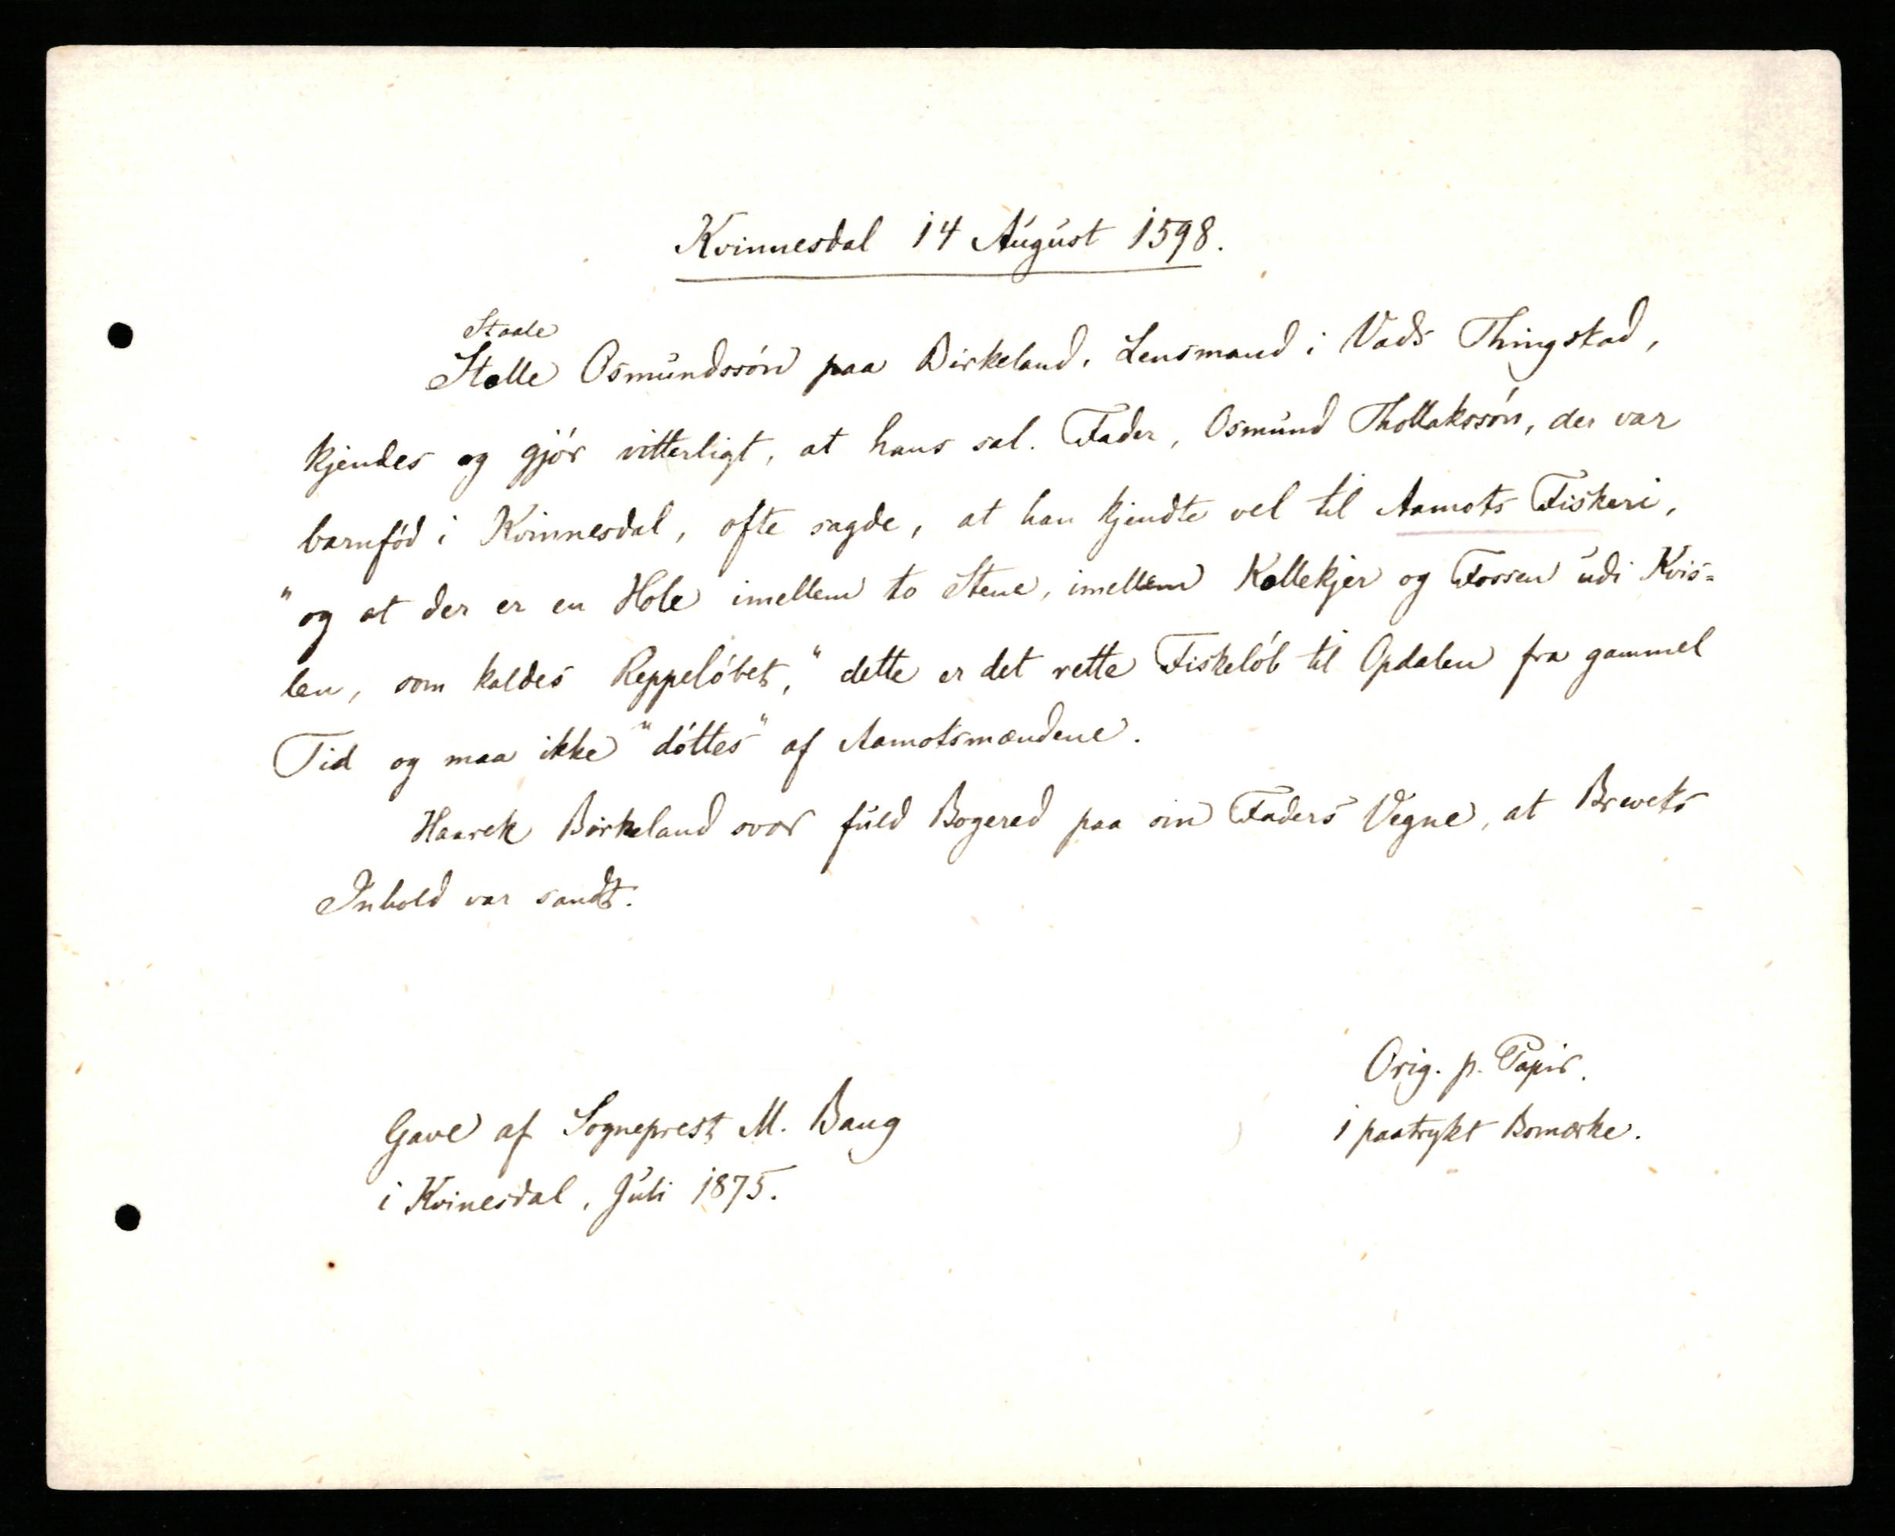 Kvinnesdal 14 August 1598.
Staale
Stolle Osmundssón paa Birkeland, Lensmand i Vads Thingstad,
kjendes og gjór vitterligt, at hans sal. Fader, Osmund Thollakssón, der var
barnfód i Kvinnesdal, ofte sagde, at han kjendte vel til Aamots Fiskeri,
"og at der er en Hole imellem to Stene, imellem Kollekjer og Fossen udi Kvis=
len, som kaldes Reppelóbet," dette er det rette Fiskelób til Opdalen fra gammel
Tid og maa ikke "dóttes" af Aamotsmændene.
Haarek Birkeland svor fuld Bogered paa sin Faders Vegne, at Brevets
Inhold var sandt.
Orig. p. Papir.
1 paatrykt Bomærke.
Gave af Sogneprest M. Baug
i Kvinesdal, Juli 1875.